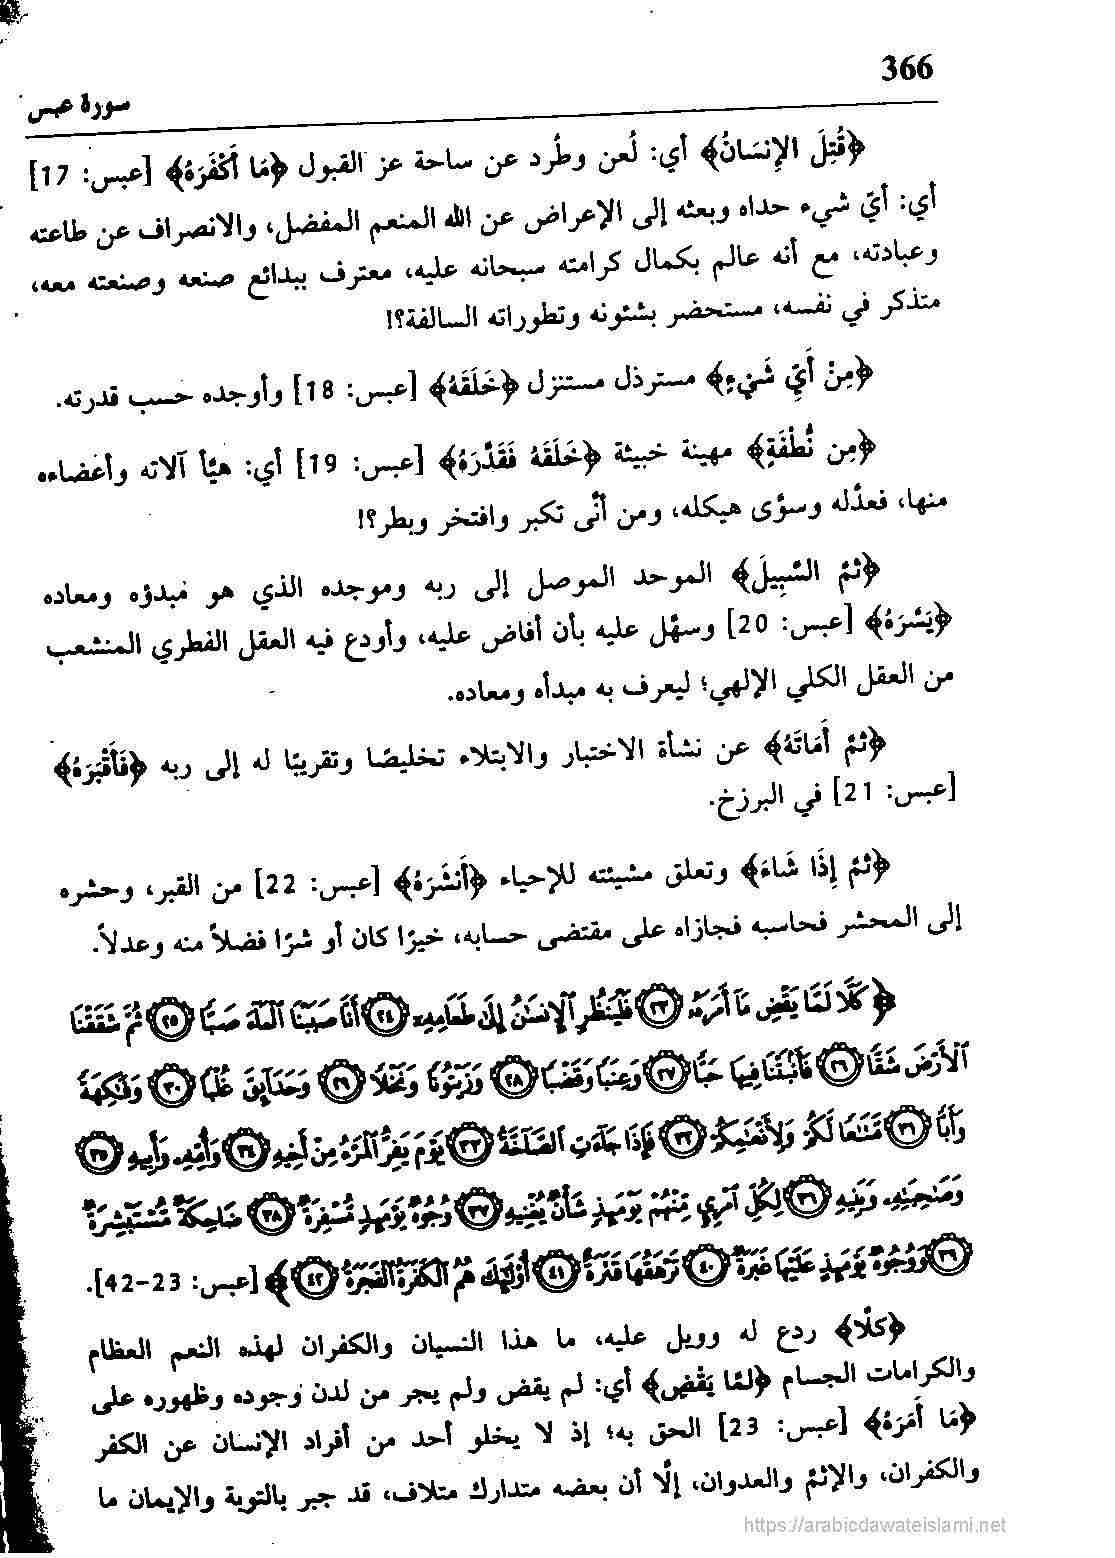 366
سورة عبس
﴿قُتِلَ الإِنسَانُ﴾ أي: لُعن وطُرد عن ساحة عز القبول ﴿مَا أَكْفَرَهُ﴾ [عبس: 17]
أي: أيّ شيء حداه وبعثه إلى الإعراض عن الله المنعم المفضل، والانصراف عن طاعته
وعبادته، مع أنه عالم بكمال كرامته سبحانه عليه، معترف ببدائع صنعه وصنعته معه،
متذكر في نفسه، مستحضر بشئونه وتطوراته السالفة؟!
﴿مِنْ أَيِّ شَيْءٍ﴾ مسترذل مستنزل ﴿خَلَقَهُ﴾ [عبس: 18] وأوجده حسب قدرته.
﴿مِن نُّطْفَةٍ﴾ مهينة خبيثة ﴿خَلَقَهُ فَقَدَّرَهُ﴾ [عبس: 19] أي: هيَّأ آلاته وأعضاءه
منها، فعدَّله وسوَّى هيكله، ومن أنَّى تكبر وافتخر وبطر؟!
﴿ثُمَّ السَّبِيلَ﴾ الموحد الموصل إلى ربه وموجده الذي هو مبدؤه ومعاده
﴿يَسَّرَهُ﴾ [عبس: 20] وسهَّل عليه بأن أفاض عليه، وأودع فيه العقل الفطري المنشعب
من العقل الكلي الإلهي؛ ليعرف به مبدأه ومعاده.
﴿ثُمَّ أَمَاتَهُ﴾ عن نشأة الاختبار والابتلاء تخليصًا وتقريبًا له إلى ربه ﴿فَأَقْبَرَهُ﴾
[عبس: 21] في البرزخ.
﴿ثُمَّ إِذَا شَاءَ﴾ وتعلق مشيئته للإحياء ﴿أَنشَرَهُ﴾ [عبس: 22] من القبر، وحشره
إلى المحشر فحاسبه فجازاه على مقتضى حسابه، خيرًا كان أو شرًا فضلاً منه وعدلاً.
﴿كَلَّا لَمَّا يَقْضِ مَآ أَمَرَهُۥ ٢٣ فَلْيَنظُرِ ٱلْإِنسَٰنُ إِلَىٰ طَعَامِهِۦٓ ٢٤ أَنَّا صَبَبْنَا ٱلْمَآءَ صَبًّا ٢٥ ثُمَّ شَقَقْنَا
ٱلْأَرْضَ شَقًّا ٢٦ فَأَنۢبَتْنَا فِيهَا حَبًّا ٢٧ وَعِنَبًا وَقَضْبًا ٢٨ وَزَيْتُونًا وَنَخْلًا ٢٩ وَحَدَآئِقَ غُلْبًا ٣٠ وَفَٰكِهَةً
وَأَبًّا ٣١ مَّتَٰعًا لَّكُمْ وَلِأَنْعَٰمِكُمْ ٣٢ فَإِذَا جَآءَتِ ٱلصَّآخَّةُ ٣٣ يَوْمَ يَفِرُّ ٱلْمَرْءُ مِنْ أَخِيهِ ٣٤ وَأُمِّهِۦ وَأَبِيهِ ٣٥
وَصَٰحِبَتِهِۦ وَبَنِيهِ ٣٦ لِكُلِّ ٱمْرِئٍ مِّنْهُمْ يَوْمَئِذٍ شَأْنٌ يُغْنِيهِ ٣٧ وُجُوهٌ يَوْمَئِذٍ مُّسْفِرَةٌ ٣٨ ضَاحِكَةٌ مُّسْتَبْشِرَةٌ
٣٩ وَوُجُوهٌ يَوْمَئِذٍ عَلَيْهَا غَبَرَةٌ ٤٠ تَرْهَقُهَا قَتَرَةٌ ٤١ أُوْلَٰٓئِكَ هُمُ ٱلْكَفَرَةُ ٱلْفَجَرَةُ ٤٢﴾ [عبس: 23-42].
﴿كَلَّا﴾ ردع له وويل عليه، ما هذا النسيان والكفران لهذه النعم العظام
والكرامات الجسام ﴿لَمَّا يَقْضِ﴾ أي: لم يقض ولم يجر من لدن وجوده وظهوره على
﴿مَا أَمَرَهُ﴾ [عبس: 23] الحق به؛ إذ لا يخلو أحد من أفراد الإنسان عن الكفر
والكفران، والإثم والعدوان، إلَّا أن بعضه متدارك متلاف، قد جبر بالتوبة والإيمان ما
https://arabicdawateislami.net